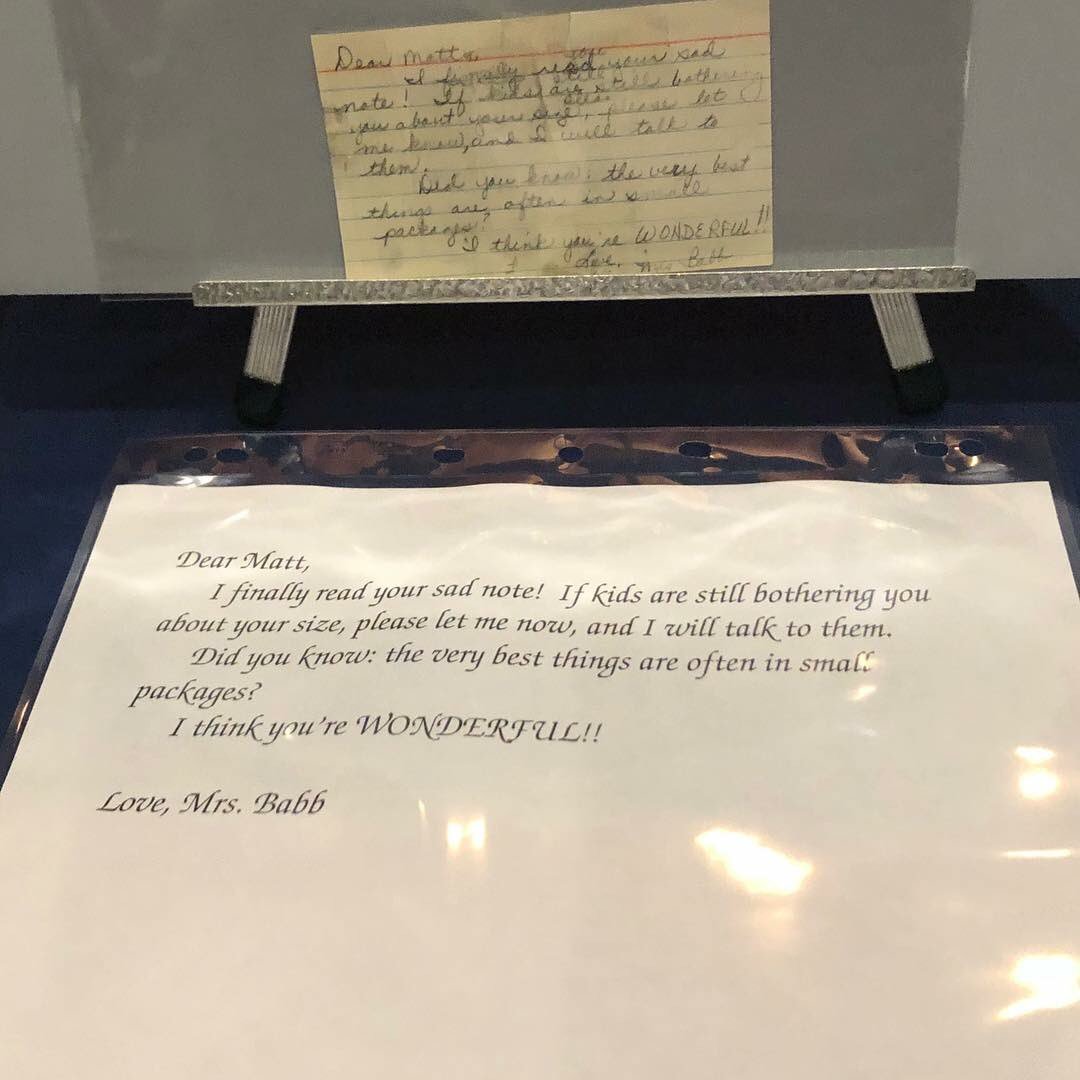 Dear Matt,
I finally read your sad
note! If kids are still bothering
you about your size, please let
me know, and I will talk to
them.
Did you know: the very best
things are often in small
packages?
I think you're WONDERFUL!!
Love, Mrs. Babb
Dear Matt,
I finally read your sad note! If kids are still bothering you
about your size, please let me now, and I will talk to them.
Did you know: the very best things are often in small
packages?
I think you're WONDERFUL!!
Love, Mrs. Babb